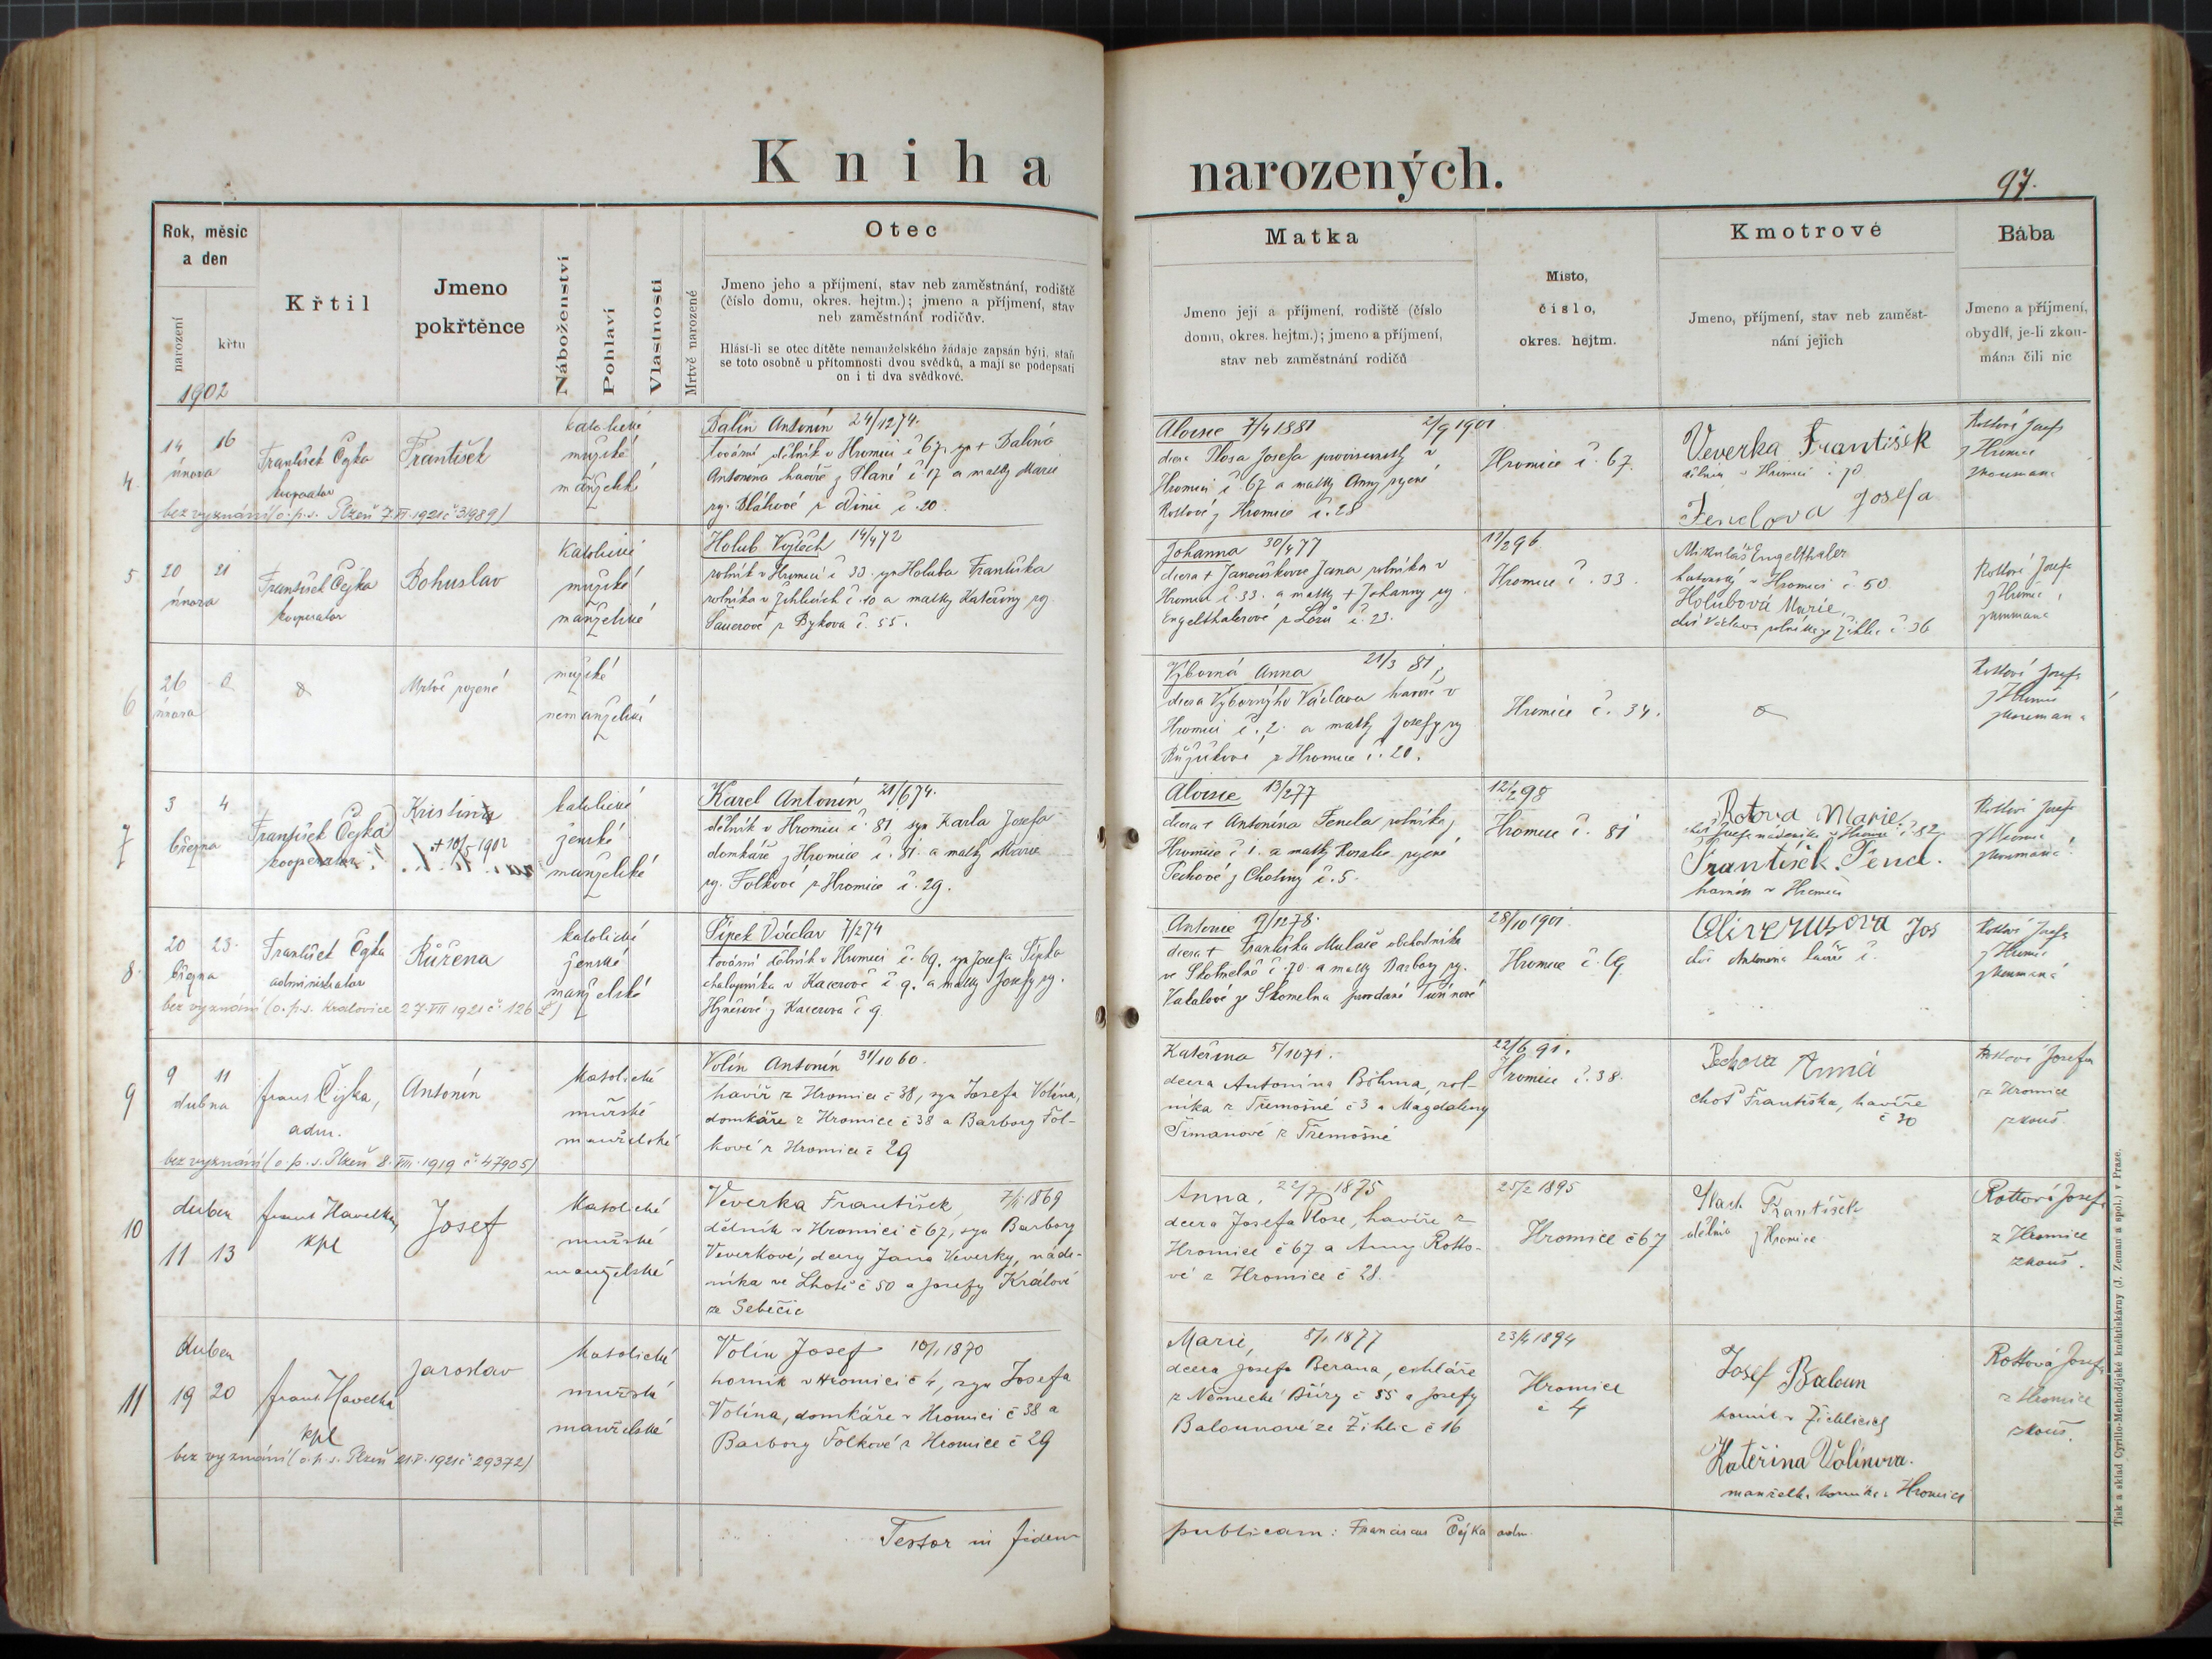 Kniha narozených.
97.
Rok, měsíc
a den
narození
křtu
1902
Křtil
Jmeno
pokřtěnce
Náboženství
Pohlaví
Vlastnosti
Mrtvě narozené
Otec
Jmeno jeho a příjmení, stav neb zaměstnání, rodiště
(číslo domu, okres. hejtm.); jmeno a příjmení, stav
neb zaměstnání rodičův.
Hlásí-li se otec dítěte nemanželského žádaje zapsán býti, staň
se toto osobně u přítomnosti dvou svědků, a mají se podepsati
on i ti dva svědkové.
Matka
Jmeno její a příjmení, rodiště (číslo
domu, okres. hejtm.); jmeno a příjmení,
stav neb zaměstnání rodičů
Místo,
číslo,
okres. hejtm.
Kmotrové
Jmeno, příjmení, stav neb zaměst-
nání jejich
Bába
Jmeno a příjmení,
obydlí, je-li zkou-
mána čili nic
4.
14 16
února
František Čejka
kooperator
František
katolické
mužské
manželské
bez vyznání (o. p. s. Plzeň 7.VI.1921 č. 31989)
Balín Antonín 24/12 74.
tovární dělník v Hromici č 67, syn + Balína
Antonína havíře z Plané č 17 a matky Marie
roz. Bláhové z č. 20.
Aloisie 7/4 1881
2/9 1901
dcera Plosa Josefa v
Hromici č. 67 a matky Anny rozené
Rottové z Hromice č. 28
Hromice č. 67.
Veverka František
dělník v Hromici č 70
Fendova Josefa
Rottová Josefa
z Hromice
zkoumaná
5.
20 21
února
František Čejka
kooperator
Bohuslav
Katolické
mužské
manželské
Holub Vojtěch 14/4 72
rolník v Hromici č 33. syn Holuba Františka
rolníka v Žihlicích č. 10 a matky Kateřiny roz.
Sauerové z Bykova č. 55.
Johanna 30/4 77
dcera + Janouškovce Jana rolníka v
Hromici č 33. a matky + Johanny roz
Engelthalerové z č. 23.
12/2 96
Hromice č. 33.
Mikuláš Engelthaler
v Hromici č. 50
Holubová Marie,
dci Václava rolníka ze Žihlic č. 36
Rottová Josefa
z Hromice,
zkoumaná
6
26
února
Mrtvě rozené
mužské
nemanželské
Výborná Anna 21/3 81,
dcera Výborného Václava havíře v
Hromici č. 2. a matky Josefy roz
Růžičkové z Hromice č. 20.
Hromice č. 34.
Rottová Josefa
z Hromice
zkoumaná
7
3 4
března
František Čejka
kooperator
Kristina
+ 10/5 1902
katolické
ženské
manželské
Karel Antonín 21/6 74.
dělník v Hromici č. 81 syn Karla Josefa
domkáře z Hromice č. 81. a matky Marie
roz. Folkové z Hromice č. 29.
Aloisie 13/2 77
dcera + Antonína Fencla rolníka z
Hromice č 1. a matky Rosalie rozené
Pechové z Choliny č. 5.
12/2 98
Hromice č. 81
Rotova Marie
choť Josefa nádeníka v Hromici č. 82
František Fencl.
horník v Hromici
Rottová Josefa
z Hromice
zkoumaná
8.
20 23.
března
František Čejka
administrator
Růžena
katolické
ženské
manželské
bez vyznání (o. p. s. Kralovice 27.VII 1921 č. 126)
Šípek Václav 7/2 74
tovární dělník v Hromici č. 69. syn Josefa Šípka
chalupníka v Kacerově č 9. a matky Josefy roz.
z Kacerova č 9.
Antonie 9/12 78.
dcera + Františka obchodníka
ve Skomelně č. 70. a matky Barbory roz.
Vatalové ze Skomelna provdané
28/10 1901.
Hromice č. 69
Jos
dci Antonína č.
Rottová Josefa
z Hromice
zkoumaná
9
9 11
dubna
Frant Čejka,
adm.
Antonín
Katolické
mužské
manželské
bez vyznání (o. p. s. Plzeň 8.VIII.1919 č 47905)
Volín Antonín 31/10 60.
havíř z Hromice č 38, syn Josefa Volína,
domkáře z Hromice č 38 a Barbory Fol-
kové z Hromice č 29
Kateřina 5/10 71.
dcera Antonína Böhma, rol-
níka z Třemošné č 3 a Magdaleny
Šimanové z Třemošné
22/6 91.
Hromice č. 38.
Pechova Anna
choť Františka, havíře
č 30
Rottová Josefa
z Hromice
zkouš.
10
duben
11 13
Frant Havelka,
kpl
Josef
Katolické
mužské
manželské
Veverka František, 7/4 1869
dělník v Hromici č 67, syn Barbory
Veverkové, dcery Jana Veverky, náde-
níka ve Lhotě č 50 a Josefy Králové
ze Sebečic
Anna, 22/7 1875
dcera Josefa Plose, havíře z
Hromice č 67 a Anny Rotto-
vé z Hromice č 28.
25/2 1895
Hromice č 67
František
dělník z Hromice
Rottová Josefa
z Hromice
zkouš.
11
duben
19 20
Frant Havelka
kpl
Jaroslav
Katolické
mužské
manželské
bez vyznání (o. p. s. Plzeň 21.V.1921 č 29372)
Volín Josef 10/1 1870
horník v Hromici č 4, syn Josefa
Volína, domkáře v Hromici č 38 a
Barbory Folkové z Hromice č 29
Marie, 8/1 1877
dcera Josefa Berana, cihláře
z Německé Břízy č 55 a Josefy
Balounové ze Žihlic č 16
23/4 1894
Hromice
č 4
Josef Baloun
horník v Žichlicích
Kateřina Volínova.
manželka horníka z Hromice
Rottová Josefa
z Hromice
zkouš.
Testor in fidem publicam: Franciscus Čejka adm.
Tisk a sklad Cyrillo-Methodějské knihtiskárny (J. Zeman a spol.) v Praze.